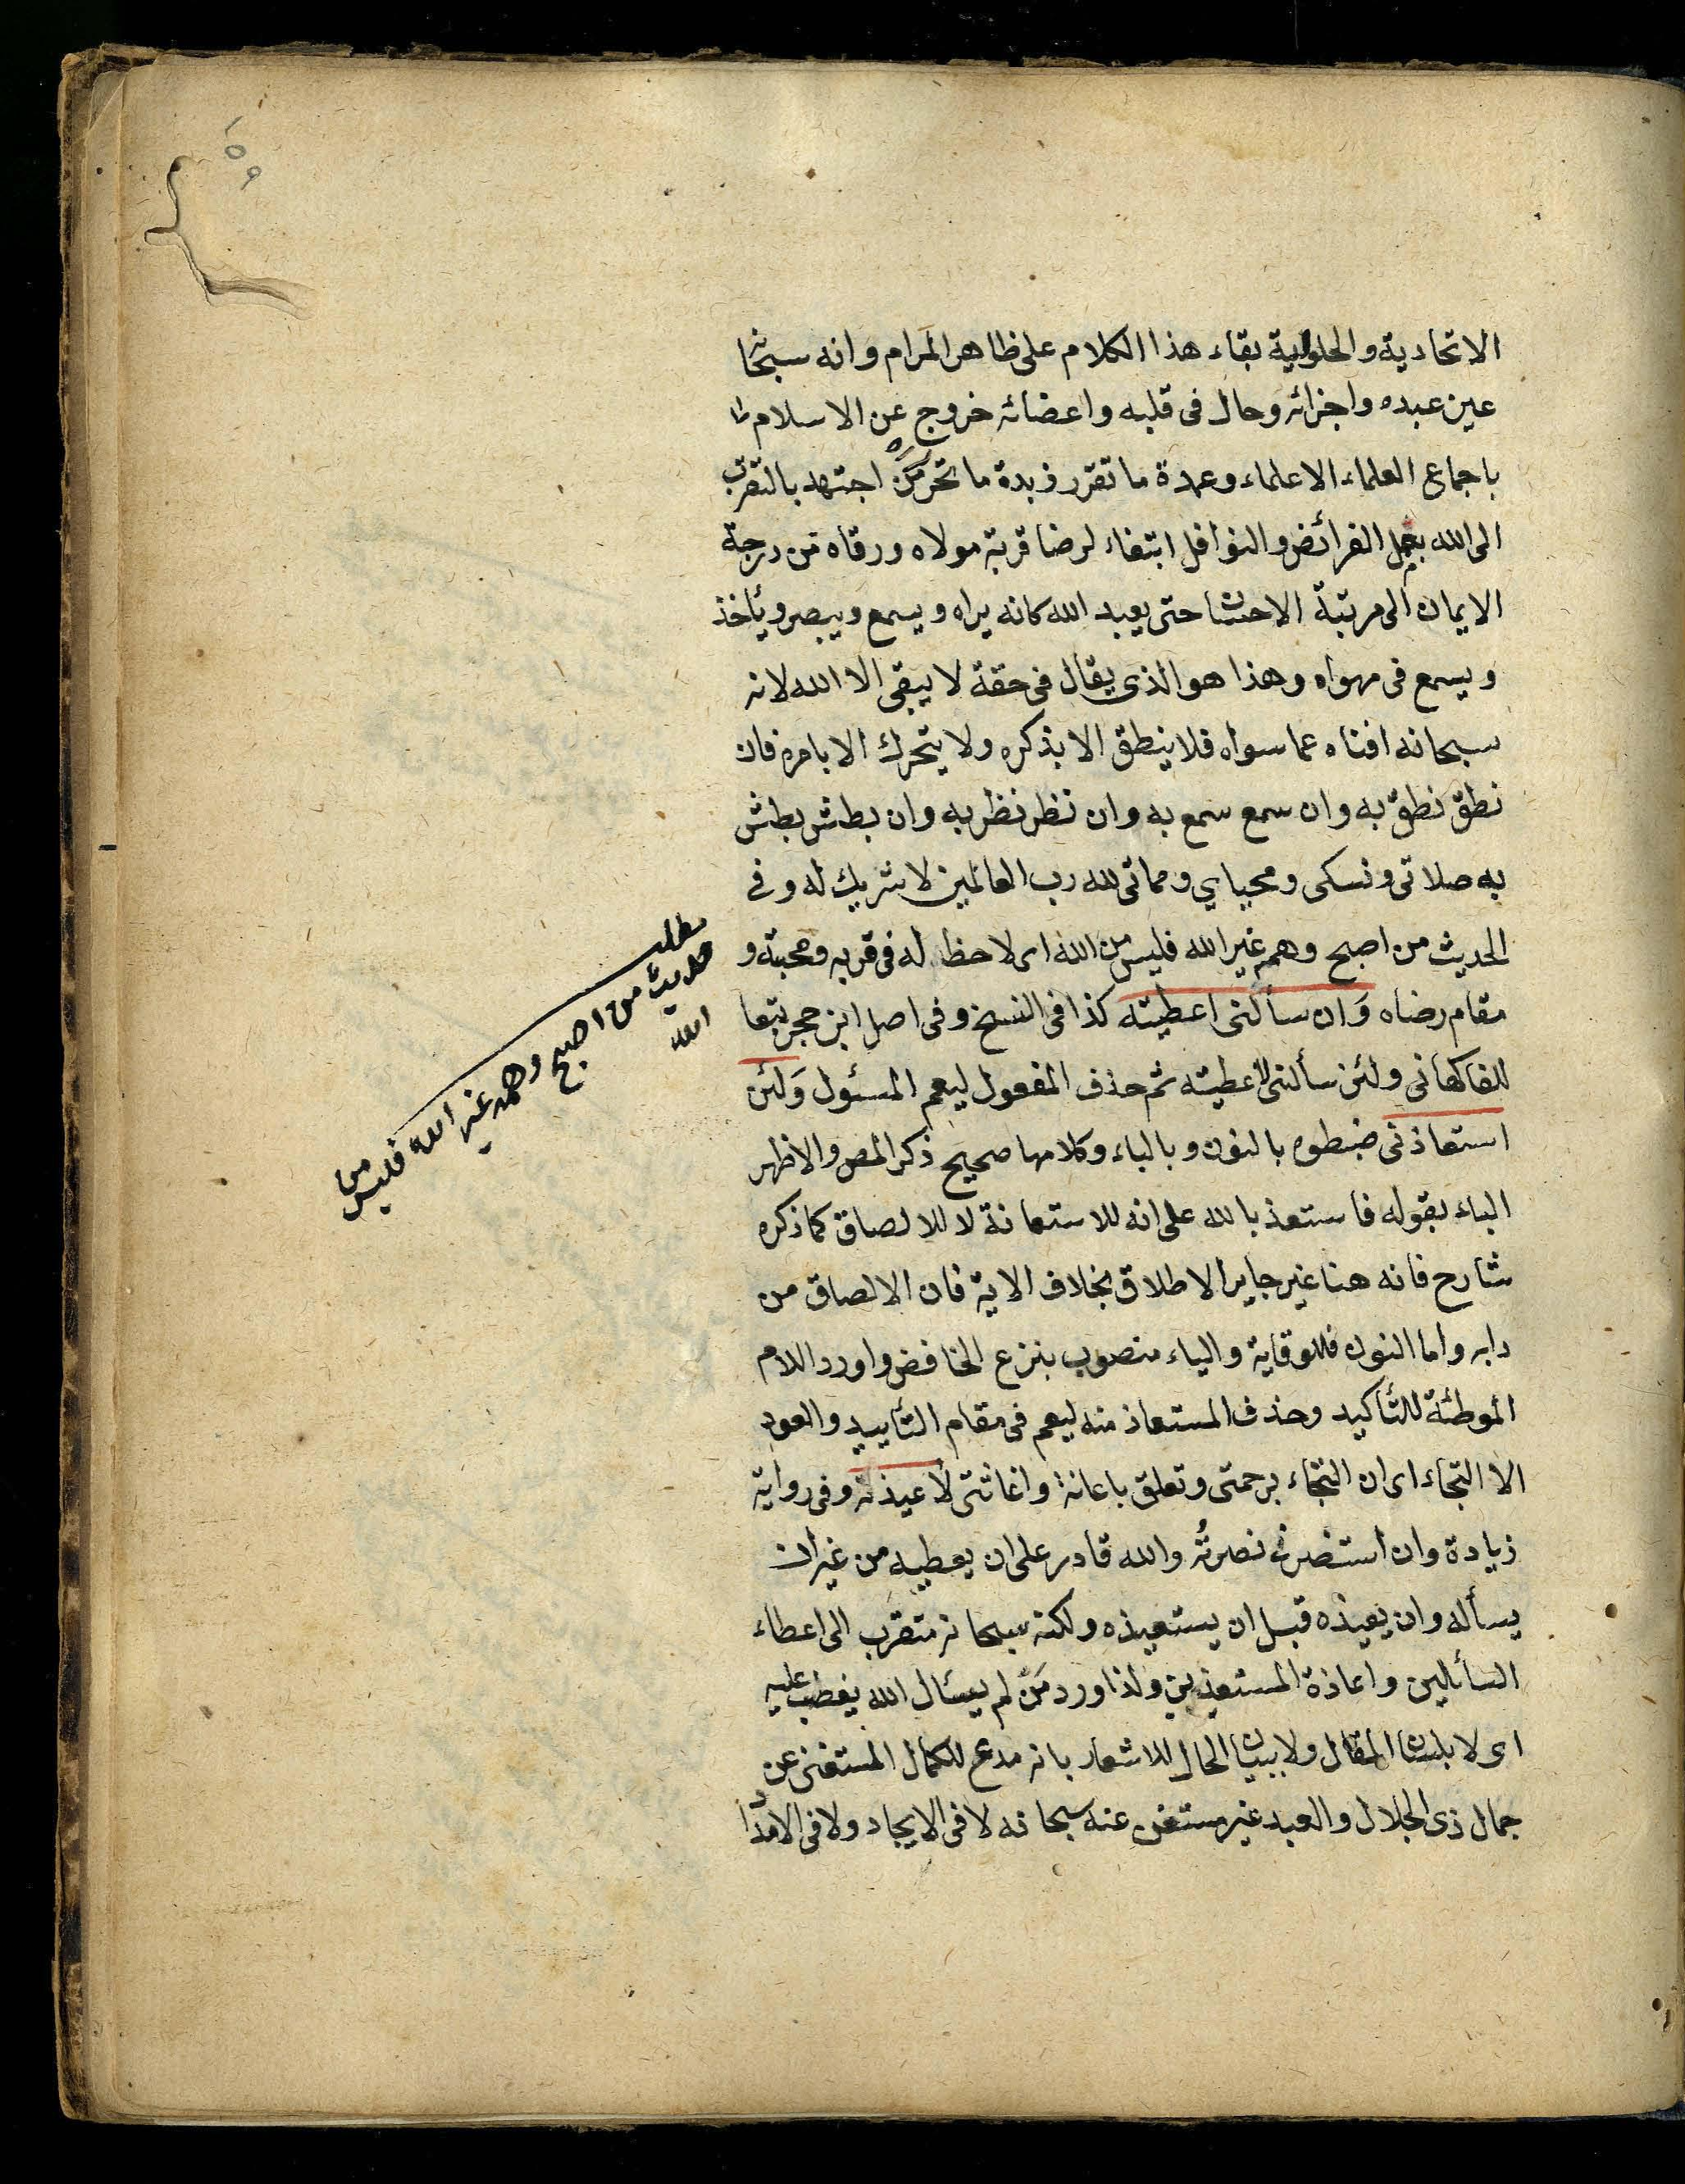 ١٥٩
الاتحادية والحلولية بقاء هذا الكلام على ظاهر المرام وانه سبحانه
عين عبده واجزائه وحال فى قلبه واعضائه خروج عن الاسلام
باجماع العلماء الاعلماء وعمدة ما تقرر زبدة ما تحرر مَن اجتهد بالتقرب
الى الله بعمل الفرائض والنوافل ابتغاء لرضا قربة مولاه ورقاه من درجة
الايمان الى مرتبة الاحسان حتى يعبد الله كانه يراه ويسمع ويبصر ويأخذ
ويسمع فى مهواه وهذا هو الذى يقال فى حقة لا يبقى الا الله لانه
سبحانه افناه عما سواه فلا ينطق الا بذكره ولا يتحرك الا بامره فان
نطق نطق به وان سمع سمع به وان نظر نظر به وان بطش بطش
به صلاتى ونسكى ومحياي ومماتى لله رب العالمين لا شريك له وفى
الحديث من اصبح وهمه غير الله فليس من الله اى لاحظ له فى قربه ومحبته و
مقام رضاه وَان سألنى اعطيته كذا فى النسخ وفى اصل ابن حجر تبعا
للفاكهانى ولئن سألنى لأعطيته ثم حذف المفعول ليعم المسئول وَلئن
استعاذنى ضبطوه بالنون وبالباء وكلامها صحيح ذكر المص والاظهر
الباء بقوله فاستعذ بالله على انه للاستعانة لا للالصاق كما ذكره
شارح فانه هنا غير جاير الاطلاق بخلاف الاية فان الالصاق من
دابه واما النون فللوقاية والياء منصوب بنزع الخافض واورد اللام
الموطئة للتأكيد وحذف المستعاذ منه ليعم فى مقام التأييد والعوذ
الا التجاء اى ان التجاء برحمتى وتعلق باعانة واغاثتى لأعيذنه وفى رواية
زيادة وان استنصرنى نصرتُه والله قادر على ان يعطيه من غير ان
يسأله وان يعيذه قبل ان يستعيذه ولكنه سبحانه متقرب الى اعطاء
السألين واعاذة المستعيذين ولذا ورد مَن لم يسئال الله يغضب عليه
اى لا بلسان المقال ولا ببيان الحال للاشعار بانه مدع للكمال المستغنى عن
جمال ذى الجلال والعبد غير مستغن عنه سبحانه لا فى الايجاد ولا فى الامداد
مطلب
حديث من اصبح وهمه غير الله فليس من
الله